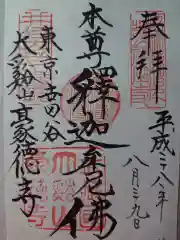 奉拝
平成二八年
八月二九日
本尊 釋迦牟尼佛
東京世田谷
大谿山豪徳寺